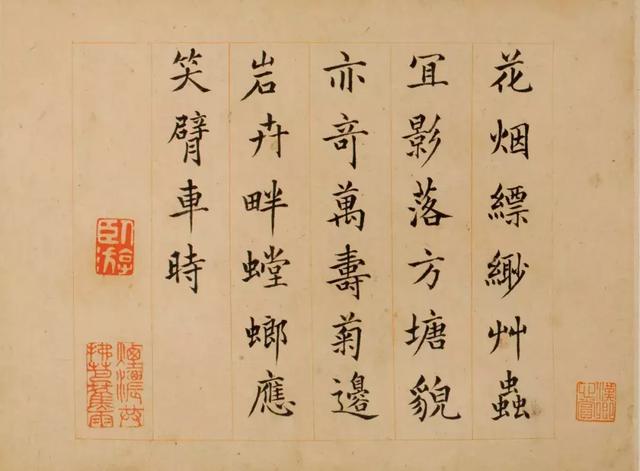 花烟縹緲艸蟲
冝影落方塘貌
亦竒萬壽菊邊
岩卉畔螳螂應
笑臂車時